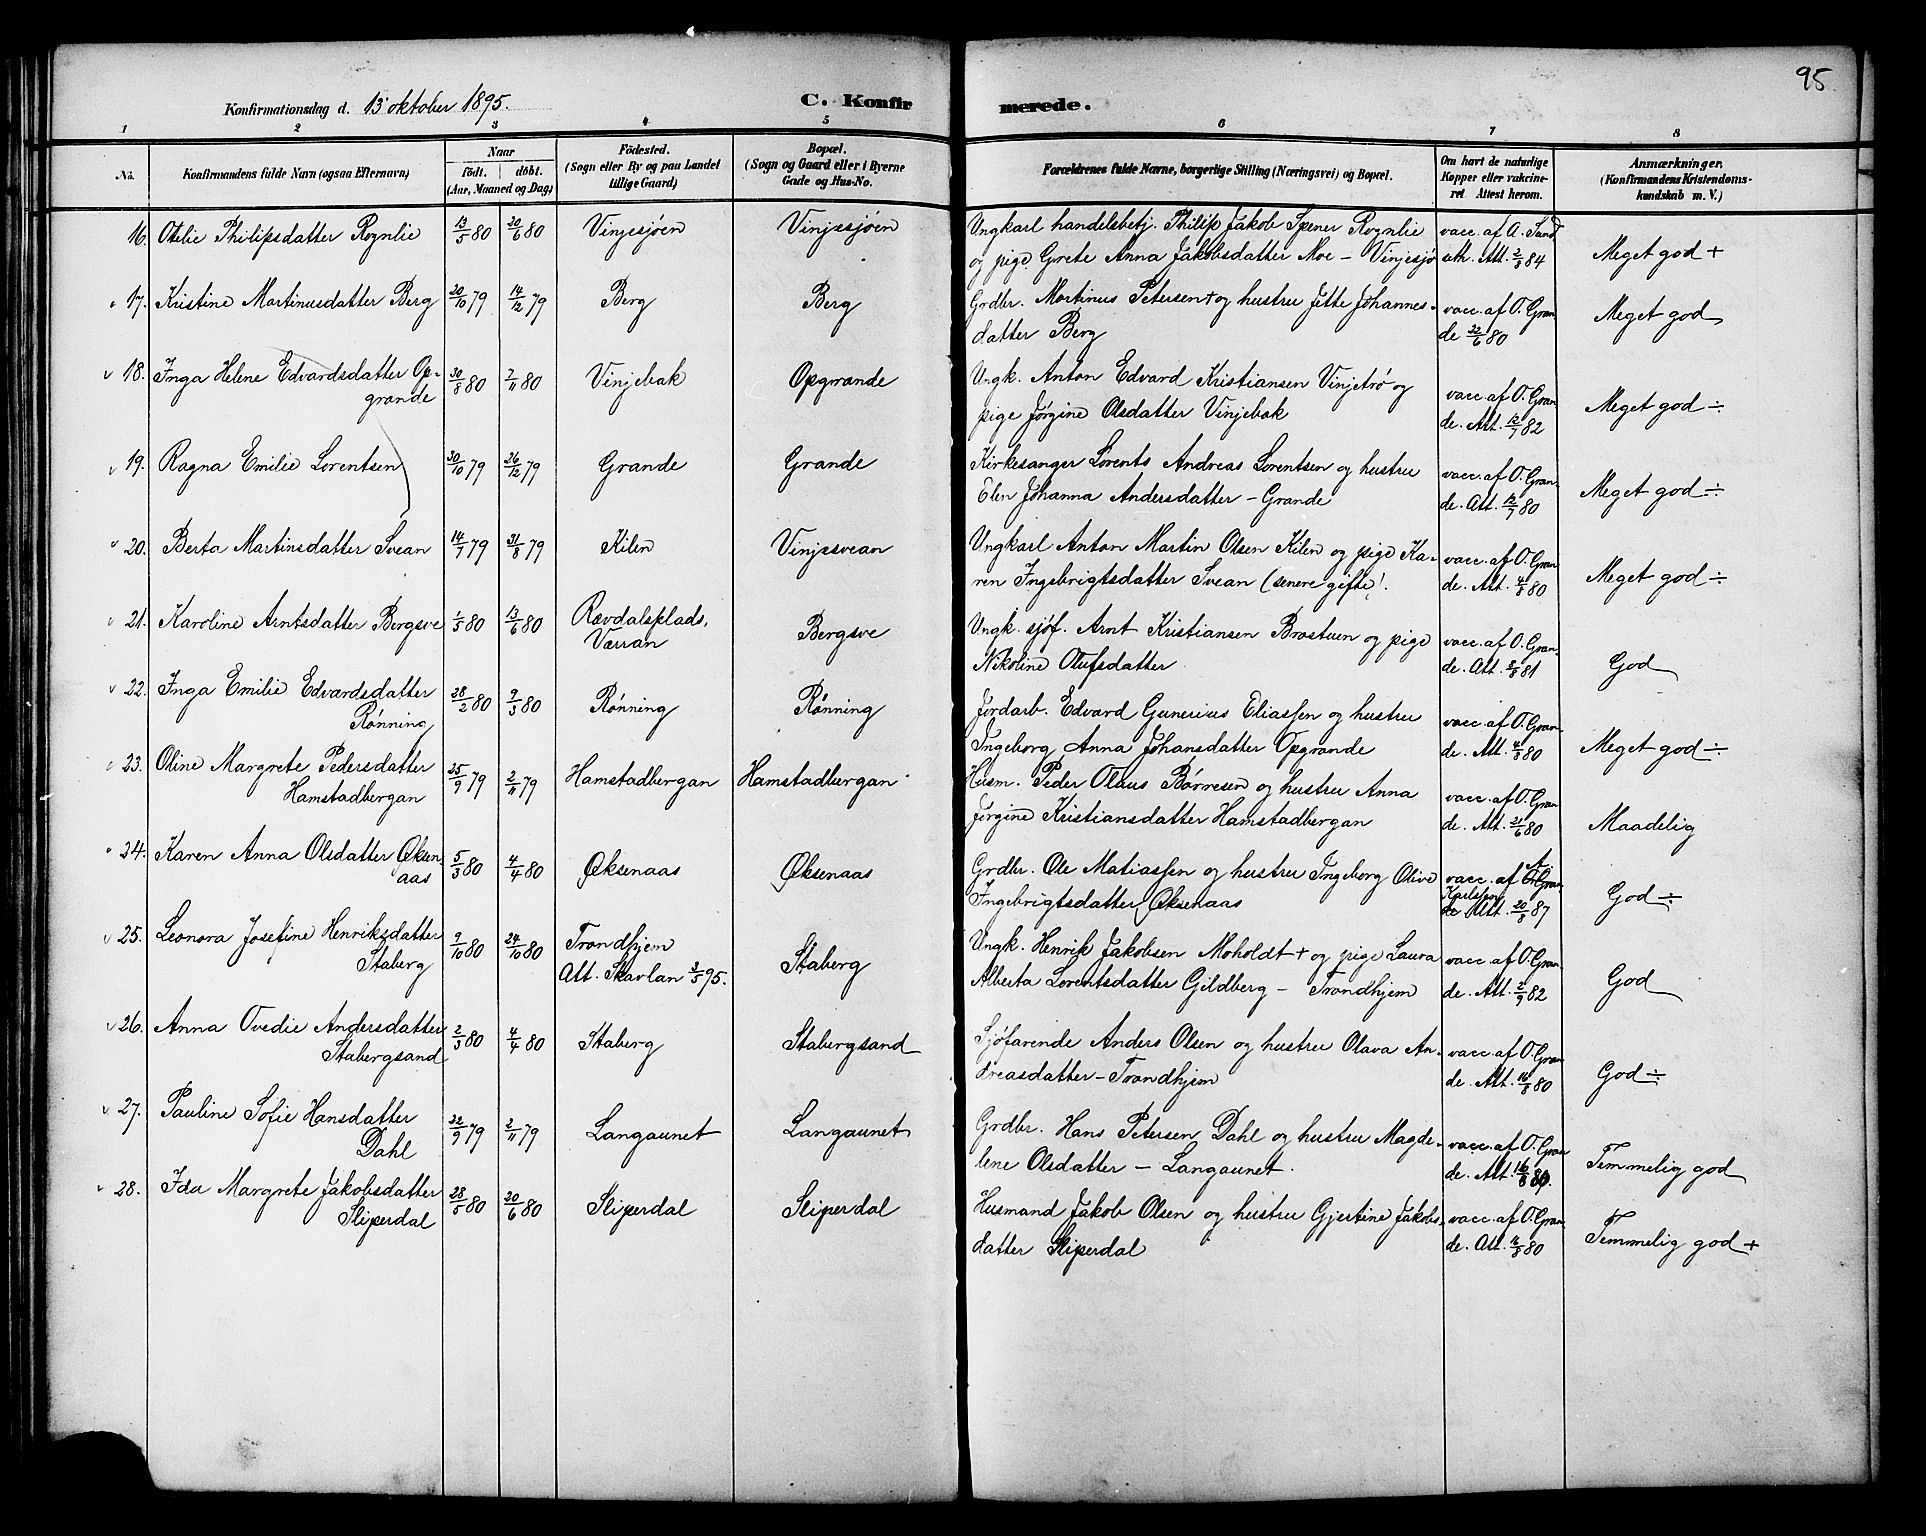 95.
Konfirmationsdag d. 13 oktober 1895.
C. Konfirmerede.
1 2 3 4 5 6 7 8
No.
Konfirmandens fulde Navn (ogsaa Efternavn)
Naar
födt. döbt.
(Aar, Maaned og Dag)
Födested.
(Sogn eller By og paa Landet
tillige Gaard)
Bopæl.
(Sogn og Gaard eller i Byerne
Gade og Hus-No.
Forældrenes fulde Navne, borgerlige Stilling (Næringsvei) og Bopæl.
Om havt de naturlige
Kopper eller vakcine-
ret. Attest herom.
Anmærkninger.
(Konfirmandens Kristendoms-
kundskab m. V.)
16. Otelie Philipsdatter Rognlie 13/5 80 20/6 80 Vinjesjøen Vinjesjøen
Ungkarl handelsbetj. Philip Jakob Spener Rognlie
og pige Grete Anna Jakobsdatter Moe – Vinjesjø
vacc. af A. Sand
seth. Att. 2/8 84
Meget god +
17. Kristine Martinusdatter Berg 20/10 79 14/12 79 Berg Berg
Grdbr. Martinus Petersen + og hustru Jette Johannes-
datter Berg
vacc. af O. Gran
de 22/6 80
Meget god
18. Inga Helene Edvardsdatter Op-
grande 30/8 80 7/11 80 Vinjebak Opgrande
Ungk. Anton Edvard Kristiansen Vinjetrø og
pige Jørgine Olsdatter Vinjebak
vacc. af O. Gran
de. Att. 12/7 82
Meget god ÷
19. Ragna Emilie Lorentsen 30/10 79 26/12 79 Grande Grande
Kirkesanger Lorents Andreas Lorentsen og hustru
Elen Johanna Andersdatter – Grande
vacc. af O. Gran-
de. Att. 12/7 80
Meget god ÷
20. Berta Martinsdatter Svean 14/7 79 31/8 79 Kilen Vinjesvean
Ungkarl Anton Martin Olsen Kilen og pige Ka-
ren Ingebrigtsdatter Svean (senere gifte).
vacc. af O. Gran
de. Att. 4/8 80
Meget god ÷
21. Karoline Arntsdatter Bergsve 1/5 80 13/6 80 Rævdalsplads,
Værran Bergsve
Ungk. sjøf. Arnt Kristiansen Brostuen og pige
Nikoline Olufsdatter
vacc. af O. Gran-
de. Att. 2/8 81
God
22. Inga Emilie Edvardsdatter
Rønning 28/2 80 9/3 80 Rønning Rønning
Jordarb. Edvard Gunerius Eliassen og hustru
Ingeborg Anna Johansdatter Opgrande
vacc. af O. Gran
de. Att. 4/8 80
Meget god ÷
23. Oline Margrete Pedersdatter
Hamstadbergan 25/9 79 2/11 79 Hamstadbergan Hamstadbergan
Husm. Peder Olaus Børresen og hustru Anna
Jørgine Kristiansdatter Hamstadbergan
vacc. af O. Gran
de. Att. 21/6 80
Maadelig
24. Karen Anna Olsdatter Øksen
aas 5/3 80 4/4 80 Øksenaas Øksenaas
Grdbr. Ole Matiassen og hustru Ingeborg Olive
Ingebrigtsdatter Øksenaas
vacc. af A.
Karlsson
Att. 20/8 87
God ÷
25. Leonora Josefine Henriksdatter
Staberg 9/10 80 24/10 80 Trondhjem
Att. Skavlan 3/5 95. Staberg
Ungk. Henrik Jakobsen Moholdt + og pige Laura
Alberta Lorentsdatter Gildberg – Trondhjem
vacc. af O. Gran-
de. Att. 2/9 82
God
26. Anna Ovedie Andersdatter
Stabergsand 2/3 80 4/4 80 Staberg Stabergsand
Sjøfarende Anders Olsen og hustru Olava An-
dreasdatter – Trondhjem
vacc. af O. Gran
de. Att. 16/8 80
God ÷
27. Pauline Sofie Hansdatter
Dahl 22/9 79 2/11 79 Langaunet Langaunet
Grdbr. Hans Petersen Dahl og hustru Magde-
lene Olsdatter – Langaunet.
vacc. af O. Gran
de. Att. 16/8 80.
Temmelig god
28. Ida Margrete Jakobsdatter
Sliperdal 28/5 80 20/6 80 Sliperdal Sliperdal
Husmand Jakob Olsen og hustru Gjertine Jakobs-
datter Sliperdal
vacc. af O. Gran-
de. Att. 11/8 80
Temmelig god +